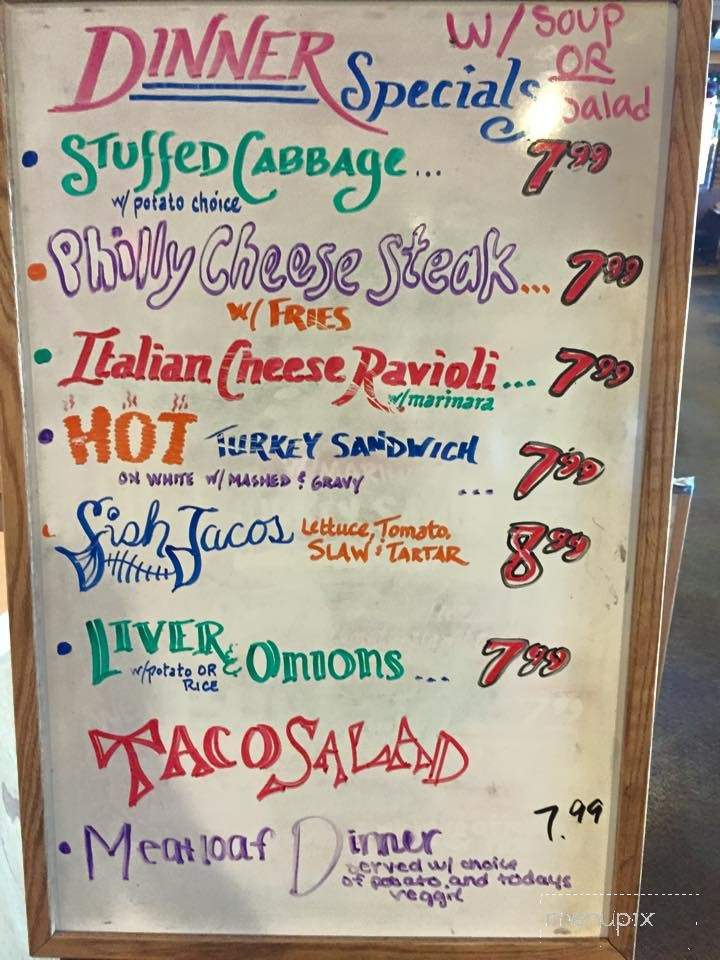 DINNER Specials w/ SOUP
OR
Salad
• STUFFED CABBAGE... 7.99
w/ potato choice
• Philly Cheese Steak... 7.99
w/ FRIES
• Italian Cheese Ravioli... 7.99
w/marinara
• HOT TURKEY SANDWICH
ON WHITE w/ MASHED & GRAVY ... 7.99
Fish Tacos Lettuce, Tomato,
SLAW & TARTAR 8.99
• LIVER & Onions... 7.99
w/potato OR
RICE
TACO SALAD
7.99
• Meatloaf Dinner
served w/ choice
of potato and todays
veggie
menupix